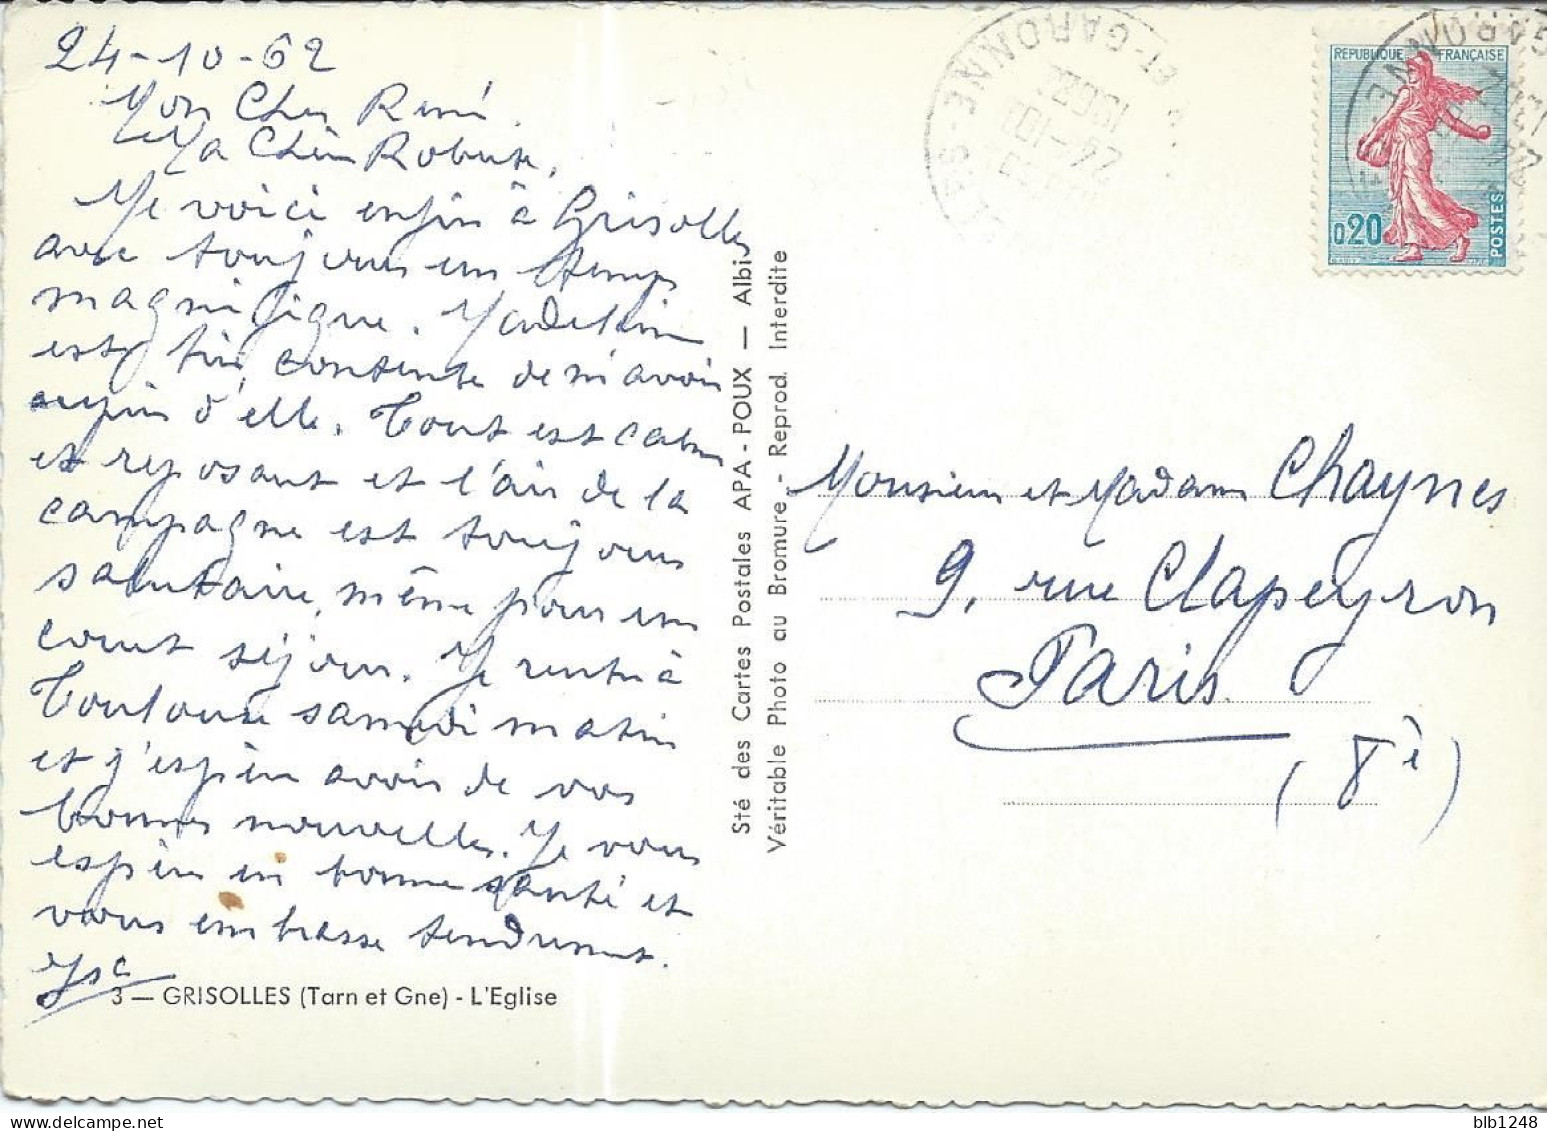 24-10-62
Mon Cher René.
Ma Chère Roberte,
Me voici enfin à Grisolles
avec toujours un temps
magnifique. Madeleine
est très contente de m'avoir
auprès d'elle. Tout est calme
et reposant et l'air de la
campagne est toujours
salutaire, même pour un
court séjour. Je rentre à
Toulouse samedi matin
et j'espère avoir de vos
bonnes nouvelles. Je vous
espère en bonne santé et
vous embrasse tendrement.
3 — GRISOLLES (Tarn et Gne) - L'Eglise
Sté des Cartes Postales APA - POUX — Albi
Véritable Photo au Bromure - Reprod. Interdite
ET-GARONNE
24-10
REPUBLIQUE FRANÇAISE
0,20
POSTES
GARONNE
Monsieur et Madame Chaynes
9, rue Clapeyron
Paris
(8è)
blb1248